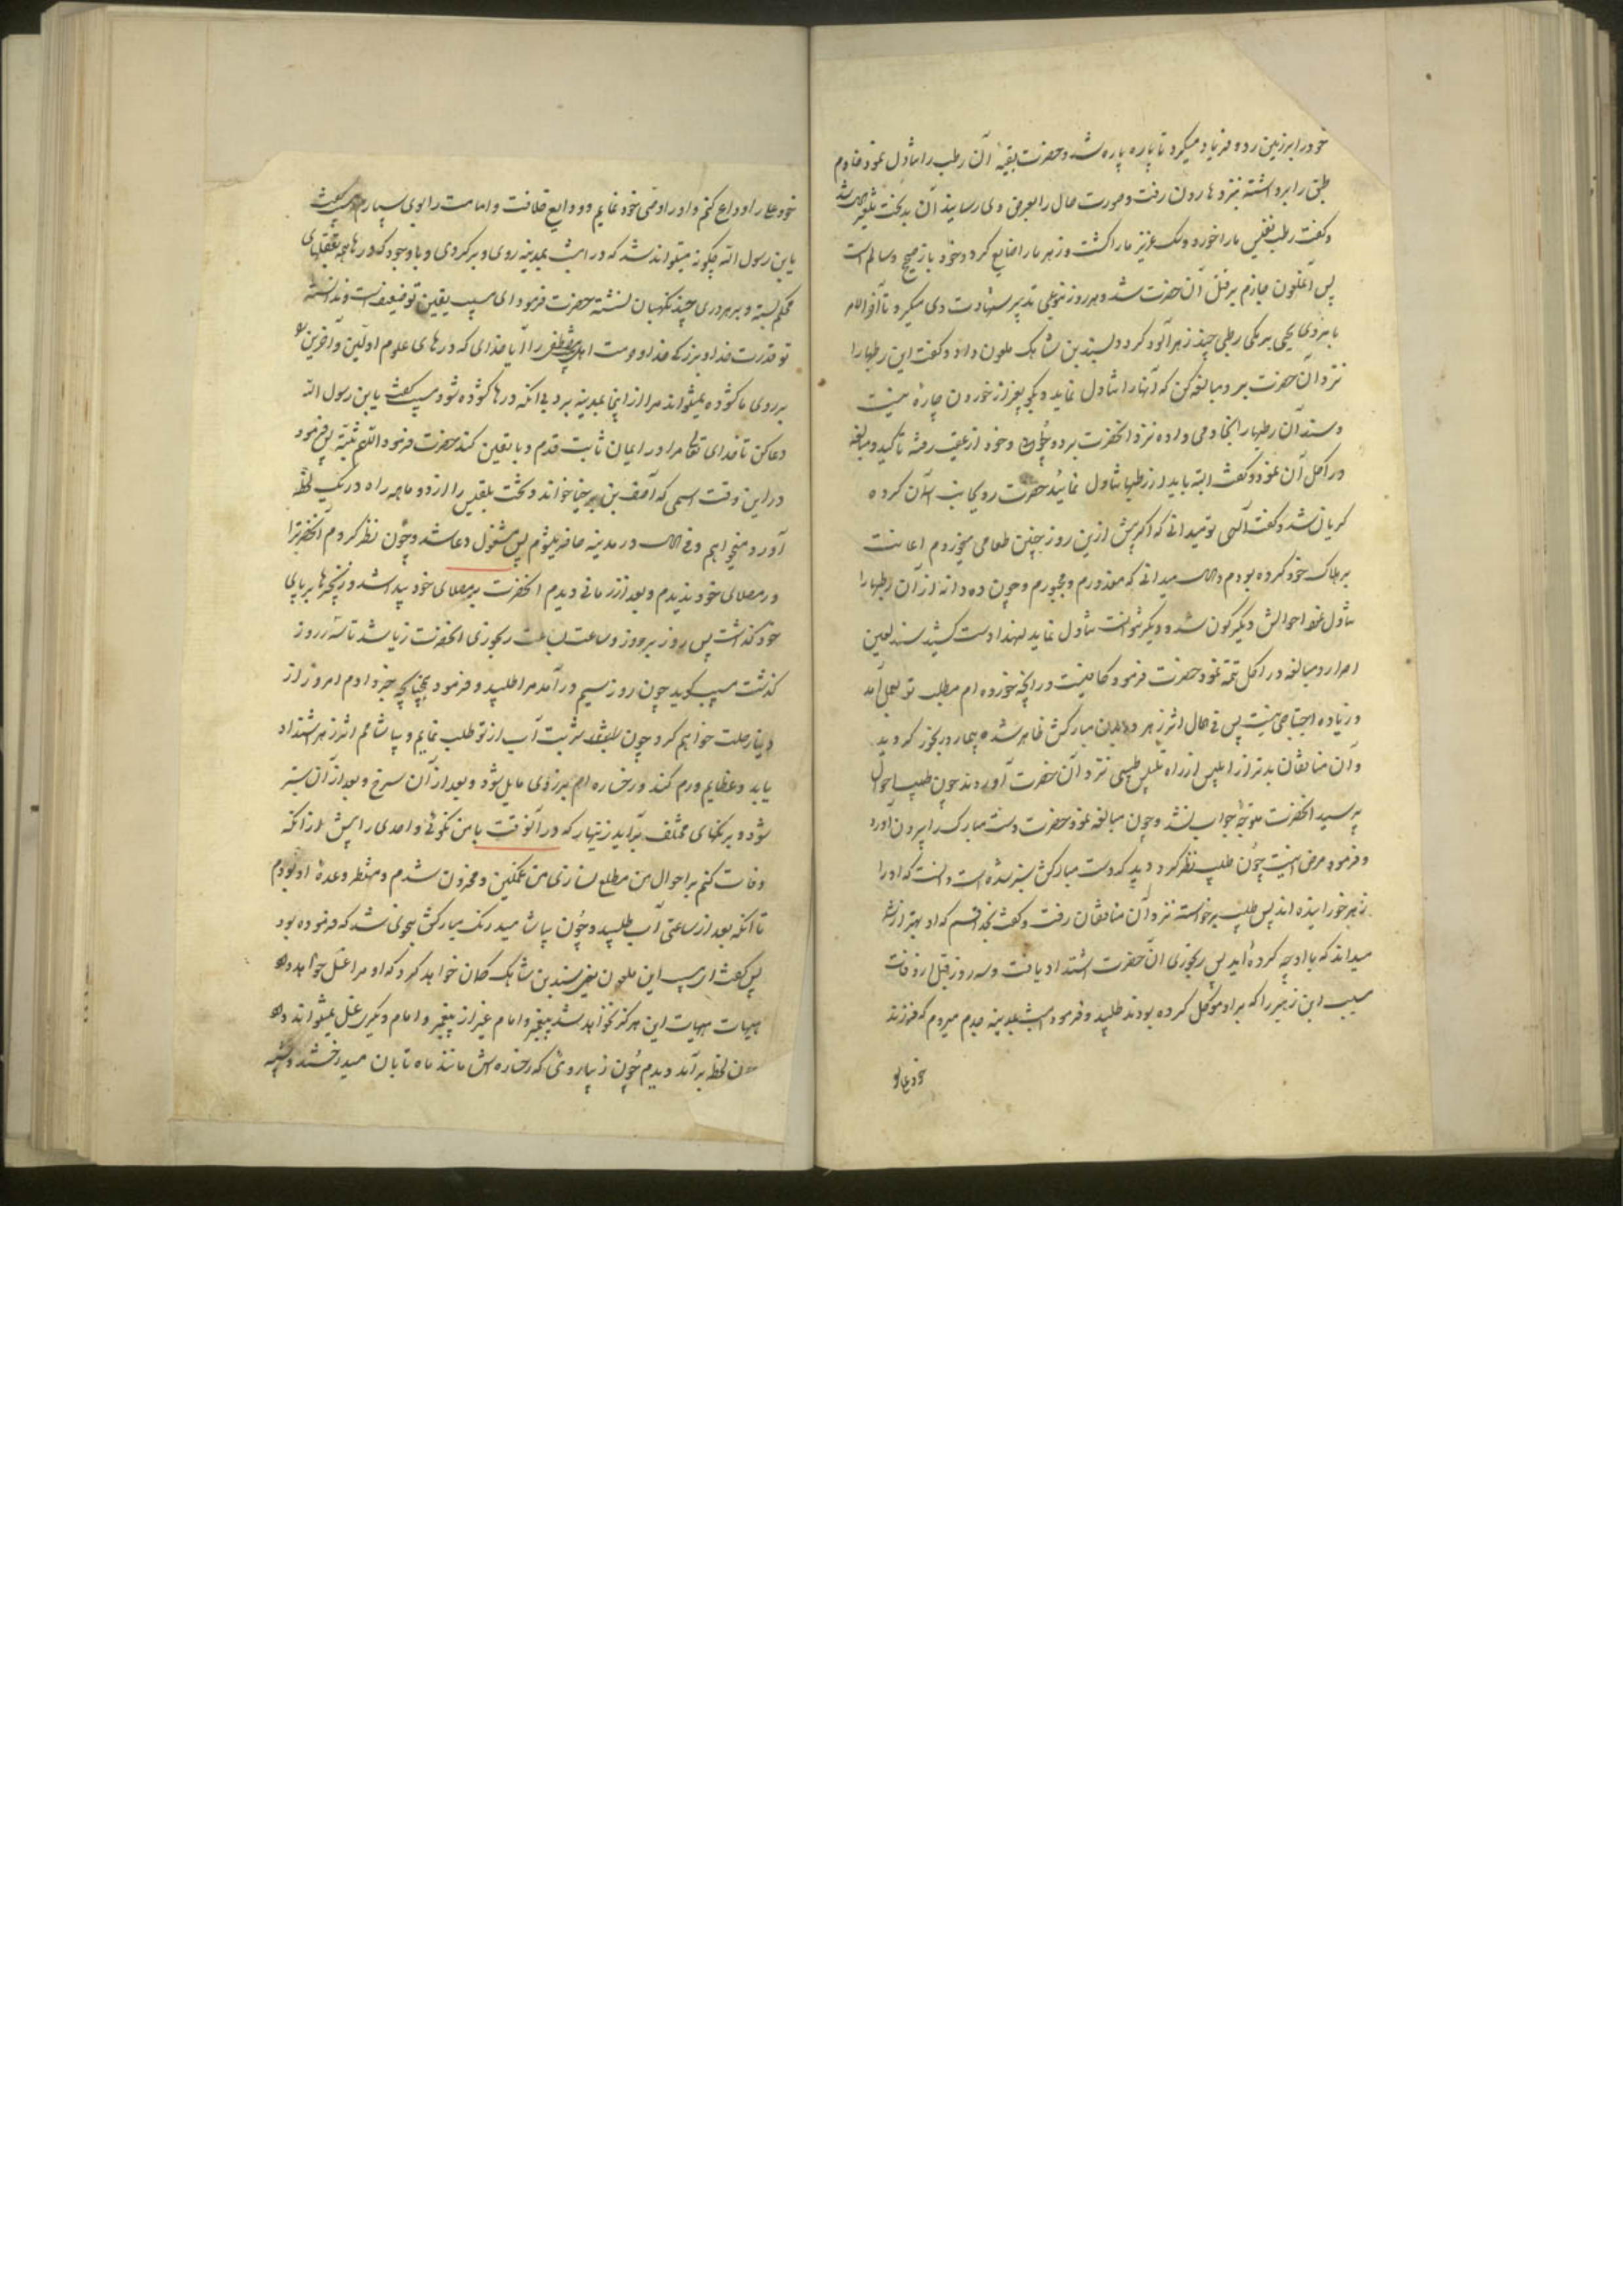 خود را بر زمین زد و فریاد میکرد تا پاره پاره شد و حضرت بقیه آن رطب را تناول نمود خادم
طبق را برداشته نزد هارون رفت و صورت حال را بعرض وی رسانید آن بدبخت متغیر شد
و گفت رطب نفیس ما را خورد و سک عزیز ما را کشت و زهر ما را ضایع کرد و خود باز صحیح و سالم است
پس آنملعون جازم بر قتل آن حضرت شد و هر روز بنوعی تدبیر شهادت وی میکرد تا آخر الامر
با یحیی برمکی رطبی چند زهرآلود کرد و بسندی بن شاهک ملعون داد و گفت این رطبها را
نزد آن حضرت ببر و مبالغه کن که آنها را تناول نماید و بگو بغیر از خوردن چاره نیست
و سندی آن رطبها را بخادمی داده نزد آنحضرت برد و خود از عقب رفته تاکید و مبالغه
در اکل آن نمود و گفت البته باید از رطبها تناول نمائید حضرت روی بجانب آسمان کرده
گریان شد و گفت آلهی تو میدانی که اگر پیش ازین روز چنین طعامی میخوردم اعانت
بر هلاک خود کرده بودم و الحال میدانی که معذورم و مجبورم و چون ده دانه از آن رطبها را
تناول نمود احوالش دیگرگون شد و دیگر نتوانست تناول نماید لهذا دست کشید سند لعین
اصرار و مبالغه در اکل تتمه نمود حضرت فرمود کافیست در آنچه خورده ام مطلب تو بعمل آمد
و زیاده احتیاجی نیست پس فی الحال اثر زهر در بدن مبارکش ظاهر شده بیمار و رنجور گردید
و آن منافقان بدتر از ابلیس از راه تلبیس طبیبی نزد آن حضرت آوردند چون طبیب احوال
پرسید آنحضرت متوجه جواب نشد و چون مبالغه نمود حضرت دست مبارک را بیرون آورد
و فرمود مرض اینست چون طبیب نظر کرد دید که دست مبارکش سبز شده است دانست که او را
زهر خورانیده اند پس طبیب برخواسته نزد آن منافقان رفت و گفت بخدا قسم که او بهتر از شما
میداند که با او چه کرده اید پس رنجوری آن حضرت اشتداد یافت و سه روز قبل از وفات
مسیب ابن زهیر را که بر او موکل کرده بودند طلبید و فرمود امشب بمدینه جدم میروم که فرزند
خود علی را وداع کنم و او را وصی خود نمایم و ودایع خلافت و امامت را بوی سپارم مسیب گفت
یابن رسول الله چگونه میتواند شد که در امشب بمدینه روی و برگردی و با وجود که درها همه بقفلهای
محکم بسته و بر هر دری چند نگهبان نشسته حضرت فرمود ای مسیب یقین تو ضعیفست و ندانسته
تو قدرت خداوند بزرک و حرمت اهل را آیا خدای که درهای علوم اولین و آخرین را
بر روی ما گشوده نمیتواند مرا از اینجا بمدینه برد بی آنکه درها گشوده شود مسیب گفت یابن رسول الله
دعا کن تا خدای تعالی مرا در ایمان ثابت قدم و با یقین کند حضرت فرمود اللهم ثبته پس فرمود
در این وقت اسمی که آصف بن برخیا خواند و تخت بلقیس را از دو ماهه راه در یک لحظه
آورد میخوانم و فی الحال در مدینه حاضر میشوم پس مشغول دعا شد و چون نظر کردم آنحضرت را
در مصلای خود ندیدم و بعد از زمانی دیدم آنحضرت در مصلای خود پیدا شد و زنجیرها بر پای
خود گذاشت پس روز بروز و ساعت بساعت رنجوری آنحضرت زیاد شد تا سه روز
گذشت مسیب گوید چون روز سیم درآمد مرا طلبید و فرمود چنانچه خبر دادم امروز از
دنیا رحلت خواهم کرد و چون شربت آب از تو طلب نمایم و بیاشامم اثر زهر اشتداد
یابد و اعضایم ورم کند و رخساره ام بزردی مایل شود و بعد از آن سرخ و بعد از آن سبز
شود و برنگهای مختلف برآید زینهار که در آنوقت با من نگوئی و احدی را پیش از آنکه
وفات کنم بر احوال من مطلع نسازی من غمگین و محزون شدم و منتظر وعده او بودم
تا آنکه بعد از ساعتی آب طلبید و چون بیاشامید رنک مبارکش بنحوی شد که فرموده بود
پس گفت ای مسیب این ملعون یعنی سندی بن شاهک گمان خواهد کرد که او مرا غسل خواهد داد
هیهات هیهات این هرگز نخواهد شد پیغمبر و امام غیر از پیغمبر و امام دیگری غسل نمیتواند داد
چون لحظه برآمد دیدم جوان زیبا روئی که رخساره اش مانند ماه تابان میدرخشید